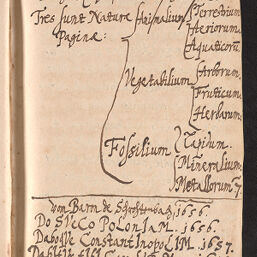 Tres sunt Naturæ Animalium Terrestrium
Paginæ: Aeriorum.
Aquaticorū
Vegetabilium Arborum.
Fruticum.
Herbarum.
Fossilium Lapidum.
Mineralium.
Metallorum.
von Barn de 1656.
Do SVCCo PoLonIaM. 1656.
DaboqVe ConstantInopoLIM. 1657.